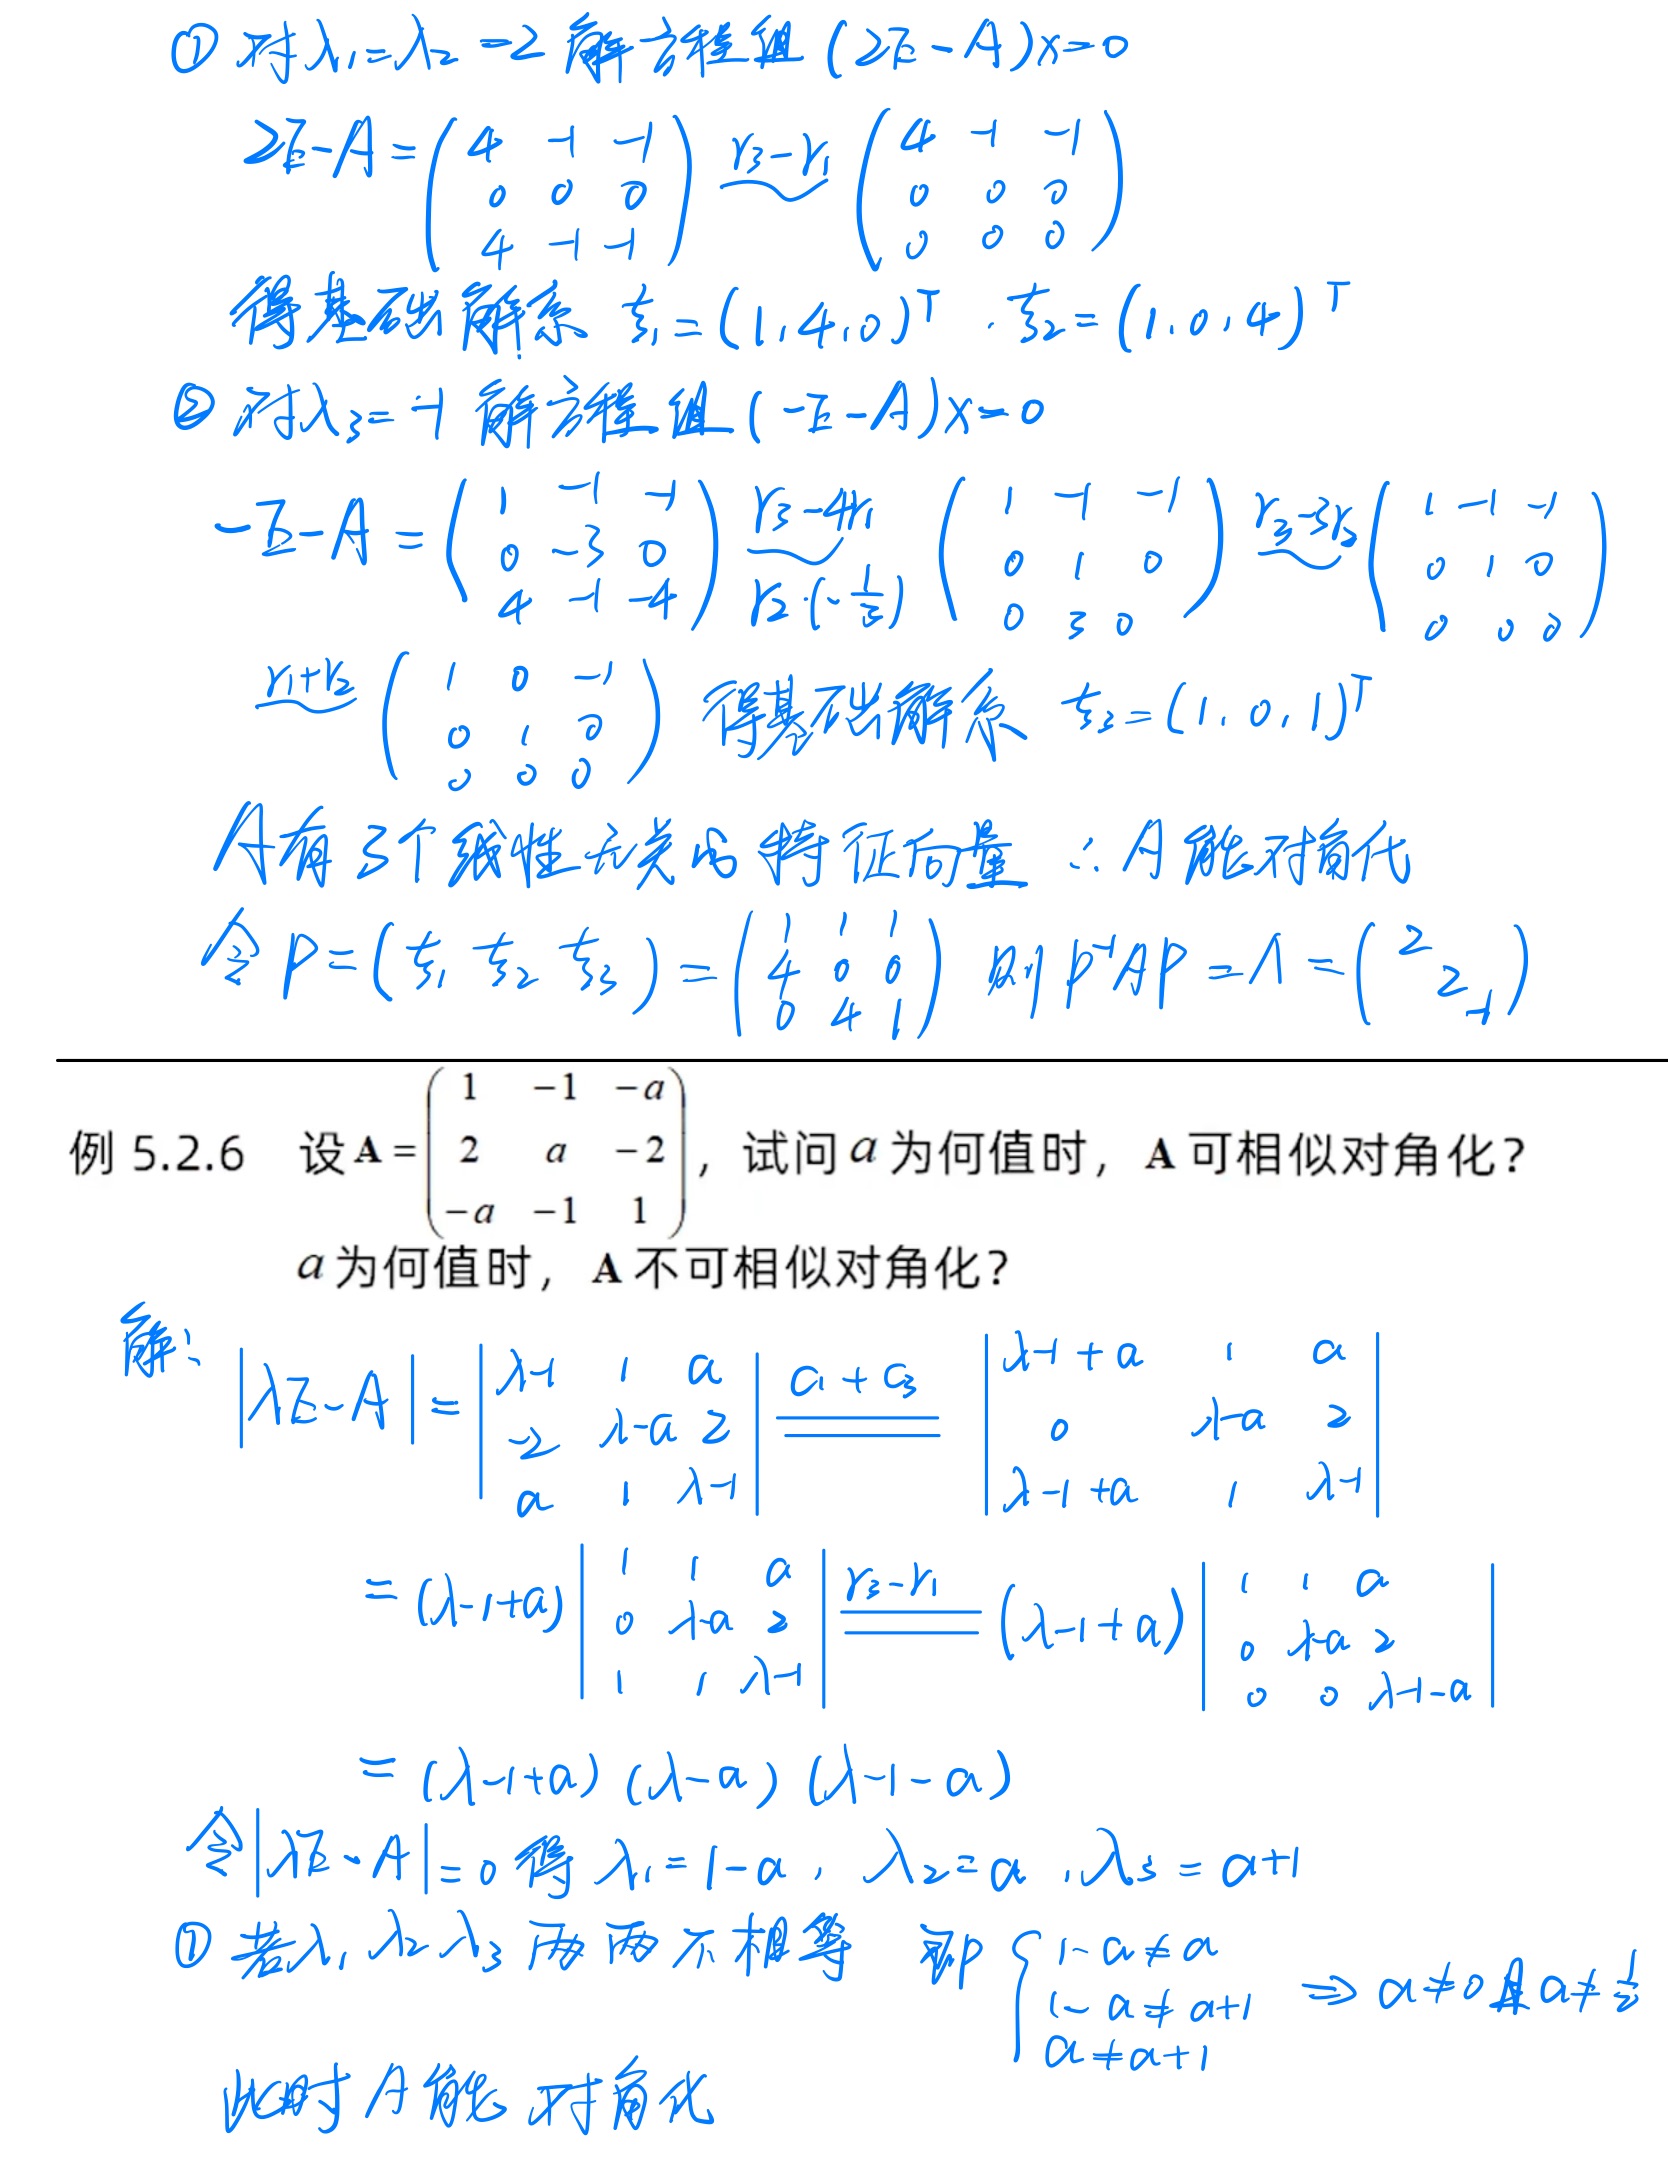 ① 对λ₁=λ₂=2 解方程组 (2E-A)x=0
2E-A = (4 -1 -1; 0 0 0; 4 -1 -1) r₃-r₁ (4 -1 -1; 0 0 0; 0 0 0)
得基础解系 ξ₁=(1,4,0)ᵀ, ξ₂=(1,0,4)ᵀ
② 对λ₃=-1 解方程组 (-E-A)x=0
-E-A = (1 -1 -1; 0 -3 0; 4 -1 -4) r₃-4r₁ r₂·(-1/3) (1 -1 -1; 0 1 0; 0 3 0) r₃-3r₂ (1 -1 -1; 0 1 0; 0 0 0)
r₁+r₂ (1 0 -1; 0 1 0; 0 0 0) 得基础解系 ξ₃=(1,0,1)ᵀ
A有3个线性无关的特征向量 ∴A能对角化
令P=(ξ₁ ξ₂ ξ₃)=(1 1 1; 4 0 0; 0 4 1) 则P⁻¹AP=Λ=(2 2 -1)
例 5.2.6 设 A = (1 -1 -a; 2 a -2; -a -1 1), 试问 a 为何值时, A 可相似对角化?
a 为何值时, A 不可相似对角化?
解: |λE-A| = |λ-1 1 a; -2 λ-a 2; a 1 λ-1| c₁+c₃ |λ-1+a 1 a; 0 λ-a 2; λ-1+a 1 λ-1|
= (λ-1+a) |1 1 a; 0 λ-a 2; 1 1 λ-1| r₃-r₁ (λ-1+a) |1 1 a; 0 λ-a 2; 0 0 λ-1-a|
= (λ-1+a)(λ-a)(λ-1-a)
令|λE-A|=0 得 λ₁=1-a, λ₂=a, λ₃=a+1
① 若λ₁ λ₂ λ₃ 两两不相等 即 {1-a≠a 1-a≠a+1 a≠a+1 ⇒ a≠0且a≠1/2
此时A能对角化